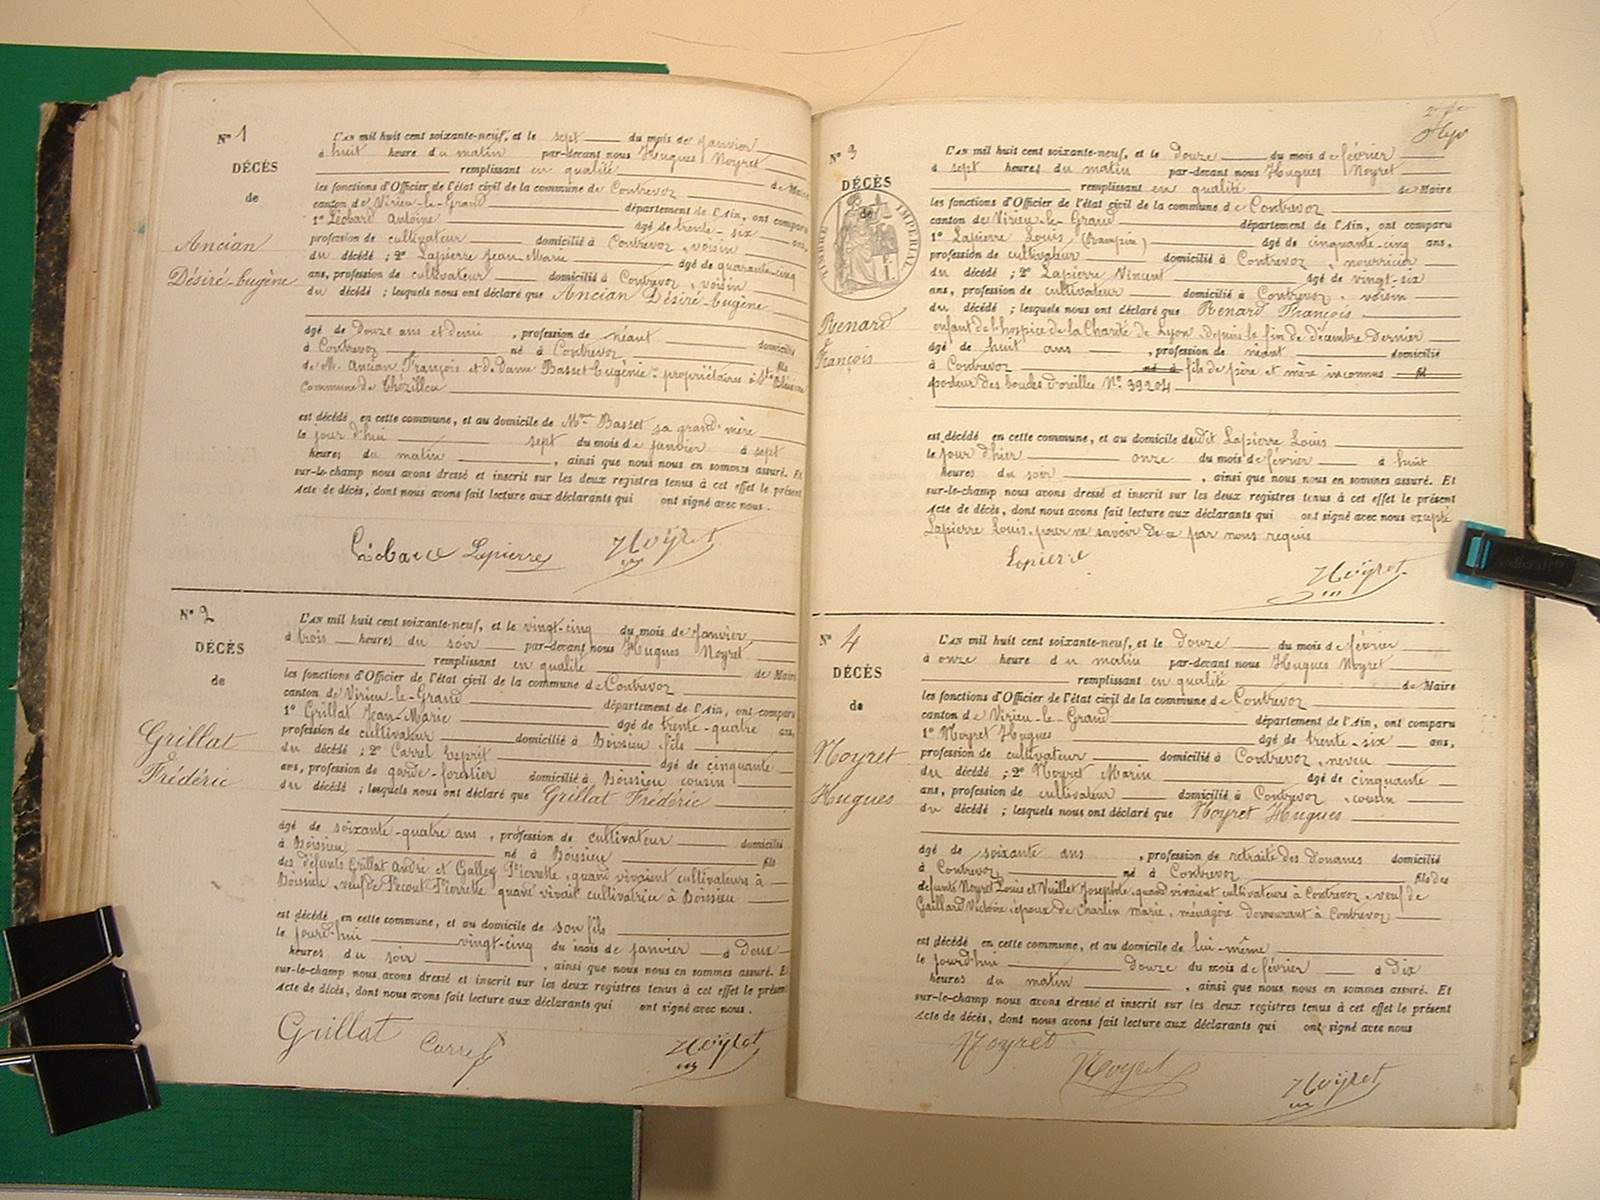 N° 1
DÉCÈS
de
Ancian
Désiré-Eugène
L'AN mil huit cent soixante-neuf, et le sept du mois de Janvier
à huit heure du matin par-devant nous Hugues Noyret
remplissant en qualité de Maire
les fonctions d'Officier de l'état civil de la commune de Contrevoz
canton de Virieu-le-Grand département de l'Ain, ont comparu
1° Léobard Antoine âgé de trente-six ans,
profession de cultivateur domicilié à Contrevoz, voisin
du décédé ; 2° Lapierre Jean Marie âgé de quarante-cinq
ans, profession de cultivateur domicilié à Contrevoz, voisin
du décédé ; lesquels nous ont déclaré que Ancian Désiré Eugène
âgé de Douze ans et demi, profession de néant domicilié
à Contrevoz né à Contrevoz fils
de M. Ancian François et de Dame Basset Eugénie propriétaires à
Commune de
est décédé en cette commune, et au domicile de Mme Basset sa grand-mère
le jour d'hui sept du mois de janvier à sept
heures du matin, ainsi que nous nous en sommes assuré. Et
sur-le-champ nous avons dressé et inscrit sur les deux registres tenus à cet effet le présent
Acte de décès, dont nous avons fait lecture aux déclarants qui ont signé avec nous.
Léobard Lapierre Noyret
N° 2
DÉCÈS
de
Grillat
Frédéric
L'AN mil huit cent soixante-neuf, et le vingt-cinq du mois de Janvier
à trois heures du soir par-devant nous Hugues Noyret
remplissant en qualité de Maire
les fonctions d'Officier de l'état civil de la commune de Contrevoz
canton de Virieu-le-Grand département de l'Ain, ont comparu
1° Grillat Jean-Marie âgé de trente-quatre ans,
profession de cultivateur domicilié à Boissieu fils
du décédé ; 2° Carrel Esprit âgé de cinquante
ans, profession de garde-forestier domicilié à Boissieu cousin
du décédé ; lesquels nous ont déclaré que Grillat Frédéric
âgé de soixante-quatre ans, profession de cultivateur domicilié
à Boissieu né à Boissieu fils
des défunts Grillat André et Galley Pierrette, quand vivaient cultivateurs à
Boissieu, veuf de Pierrette quand vivait cultivatrice à Boissieu
est décédé en cette commune, et au domicile de son fils
le jourd'hui vingt-cinq du mois de janvier à Deux
heures du soir, ainsi que nous nous en sommes assuré. Et
sur-le-champ nous avons dressé et inscrit sur les deux registres tenus à cet effet le présent
Acte de décès, dont nous avons fait lecture aux déclarants qui ont signé avec nous.
Grillat Carrel Noyret
N° 3
DÉCÈS
de
TIMBRE IMPÉRIAL
Renard
François
L'AN mil huit cent soixante-neuf, et le Douze du mois de février
à sept heures du matin par-devant nous Hugues Noyret
remplissant en qualité de Maire
les fonctions d'Officier de l'état civil de la commune de Contrevoz
canton de Virieu-le-Grand département de l'Ain, ont comparu
1° Lapierre Louis âgé de cinquante-cinq ans,
profession de cultivateur domicilié à Contrevoz, nourricier
du décédé ; 2° Lapierre Vincent âgé de vingt-six
ans, profession de cultivateur domicilié à Contrevoz, voisin
du décédé ; lesquels nous ont déclaré que Renard François
enfant de l'hospice de la Charité de Lyon, depuis le fin de décembre dernier
âgé de huit ans, profession de néant domicilié
à Contrevoz né à fils de père et mère inconnus fil
porteur des boucles d'oreilles N° 39204
est décédé en cette commune, et au domicile dudit Lapierre Louis
le jour d'hier onze du mois de février à huit
heures du soir, ainsi que nous nous en sommes assuré. Et
sur-le-champ nous avons dressé et inscrit sur les deux registres tenus à cet effet le présent
Acte de décès, dont nous avons fait lecture aux déclarants qui ont signé avec nous excepté
Lapierre Louis, pour ne savoir de ce par nous requis
Lapierre Noyret
N° 4
DÉCÈS
de
Noyret
Hugues
L'AN mil huit cent soixante-neuf, et le Douze du mois de février
à onze heure du matin par-devant nous Hugues Noyret
remplissant en qualité de Maire
les fonctions d'Officier de l'état civil de la commune de Contrevoz
canton de Virieu-le-Grand département de l'Ain, ont comparu
1° Noyret Hugues âgé de trente-six ans,
profession de cultivateur domicilié à Contrevoz, neveu
du décédé ; 2° Noyret Marin âgé de cinquante
ans, profession de cultivateur domicilié à Contrevoz, cousin
du décédé ; lesquels nous ont déclaré que Noyret Hugues
âgé de soixante ans, profession de retraité des douanes domicilié
à Contrevoz né à Contrevoz fils des
défunts Noyret Louis et Vuillet Josephte, quand vivaient cultivateurs à Contrevoz, veuf de
Gaillard Victoire, époux de Charlin Marie, ménagère demeurant à Contrevoz
est décédé en cette commune, et au domicile de lui-même
le jourd'hui Douze du mois de février à Dix
heures du matin, ainsi que nous nous en sommes assuré. Et
sur-le-champ nous avons dressé et inscrit sur les deux registres tenus à cet effet le présent
Acte de décès, dont nous avons fait lecture aux déclarants qui ont signé avec nous
Noyret Noyret Noyret